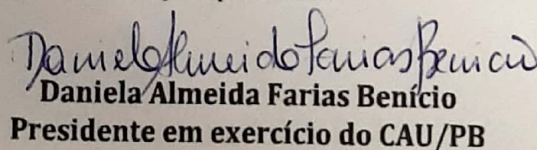 Daniela Almeida Farias Benício
Daniela Almeida Farias Benício
Presidente em exercício do CAU/PB